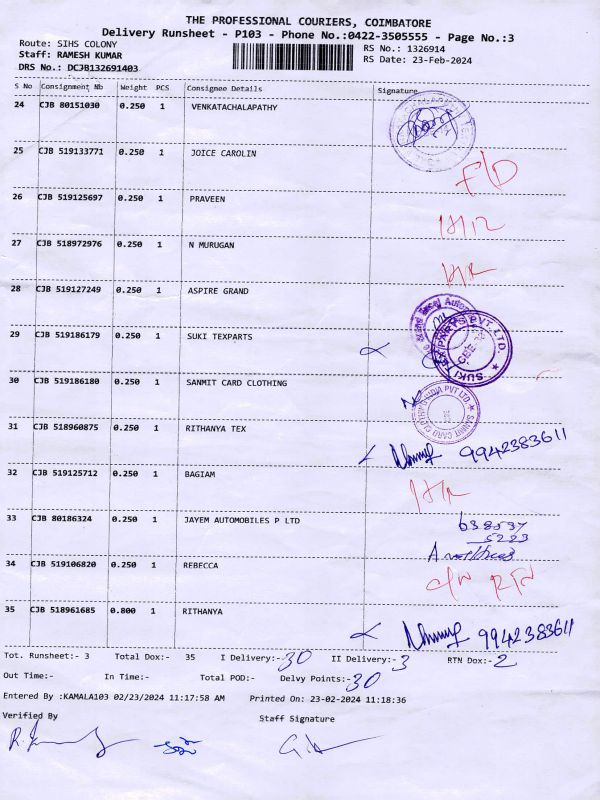 THE PROFESSIONAL COURIERS, COIMBATORE
Delivery Runsheet - P103 - Phone No.:0422-3505555 - Page No.:3
Route: SIHS COLONY
Staff: RAMESH KUMAR
DRS No.: DCJB132691403
RS No.: 1326914
RS Date: 23-Feb-2024
S No Consignment Nb Weight PCS Consignee Details Signature
24 CJB 80151030 0.250 1 VENKATACHALAPATHY
25 CJB 519133771 0.250 1 JOICE CAROLIN F/D
26 CJB 519125697 0.250 1 PRAVEEN
27 CJB 518972976 0.250 1 N MURUGAN
28 CJB 519127249 0.250 1 ASPIRE GRAND
29 CJB 519186179 0.250 1 SUKI TEXPARTS
SUKI TEXPARTS PVT. LTD. CBE
30 CJB 519186180 0.250 1 SANMIT CARD CLOTHING
SANMIT CARD CLOTHING INDIA PVT LTD.
31 CJB 518960875 0.250 1 RITHANYA TEX 9942383611
32 CJB 519125712 0.250 1 BAGIAM
33 CJB 80186324 0.250 1 JAYEM AUTOMOBILES P LTD 638537
5223
34 CJB 519106820 0.250 1 REBECCA
35 CJB 518961685 0.800 1 RITHANYA 9942383611
Tot. Runsheet:- 3 Total Dox:- 35 I Delivery:- 30 II Delivery:- 3 RTN Dox:- 2
Out Time:- In Time:- Total POD:- Delvy Points:- 30
Entered By :KAMALA103 02/23/2024 11:17:58 AM Printed On: 23-02-2024 11:18:36
Verified By Staff Signature